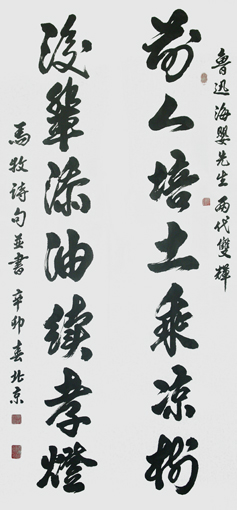 魯迅海嬰先生兩代雙輝
前人培土乘凉樹
後輩添油續孝燈
馬牧詩句並書 辛卯春北京